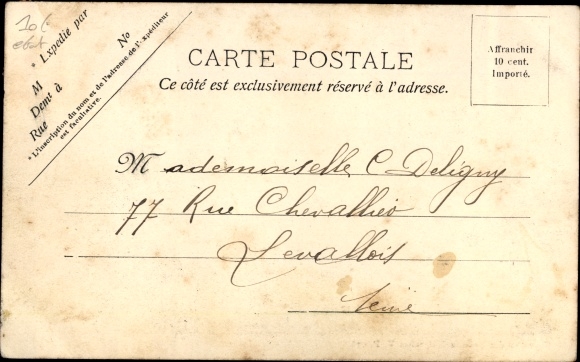 * Expédié par
M
Demt à
Rue
No
* L'inscription du nom et de l'adresse de l'expéditeur
est facultative.
CARTE POSTALE
Ce côté est exclusivement réservé à l'adresse.
Affranchir
10 cent.
Importé.
Mademoiselle C Deligny
77 Rue Chevallier
Levallois
Seine